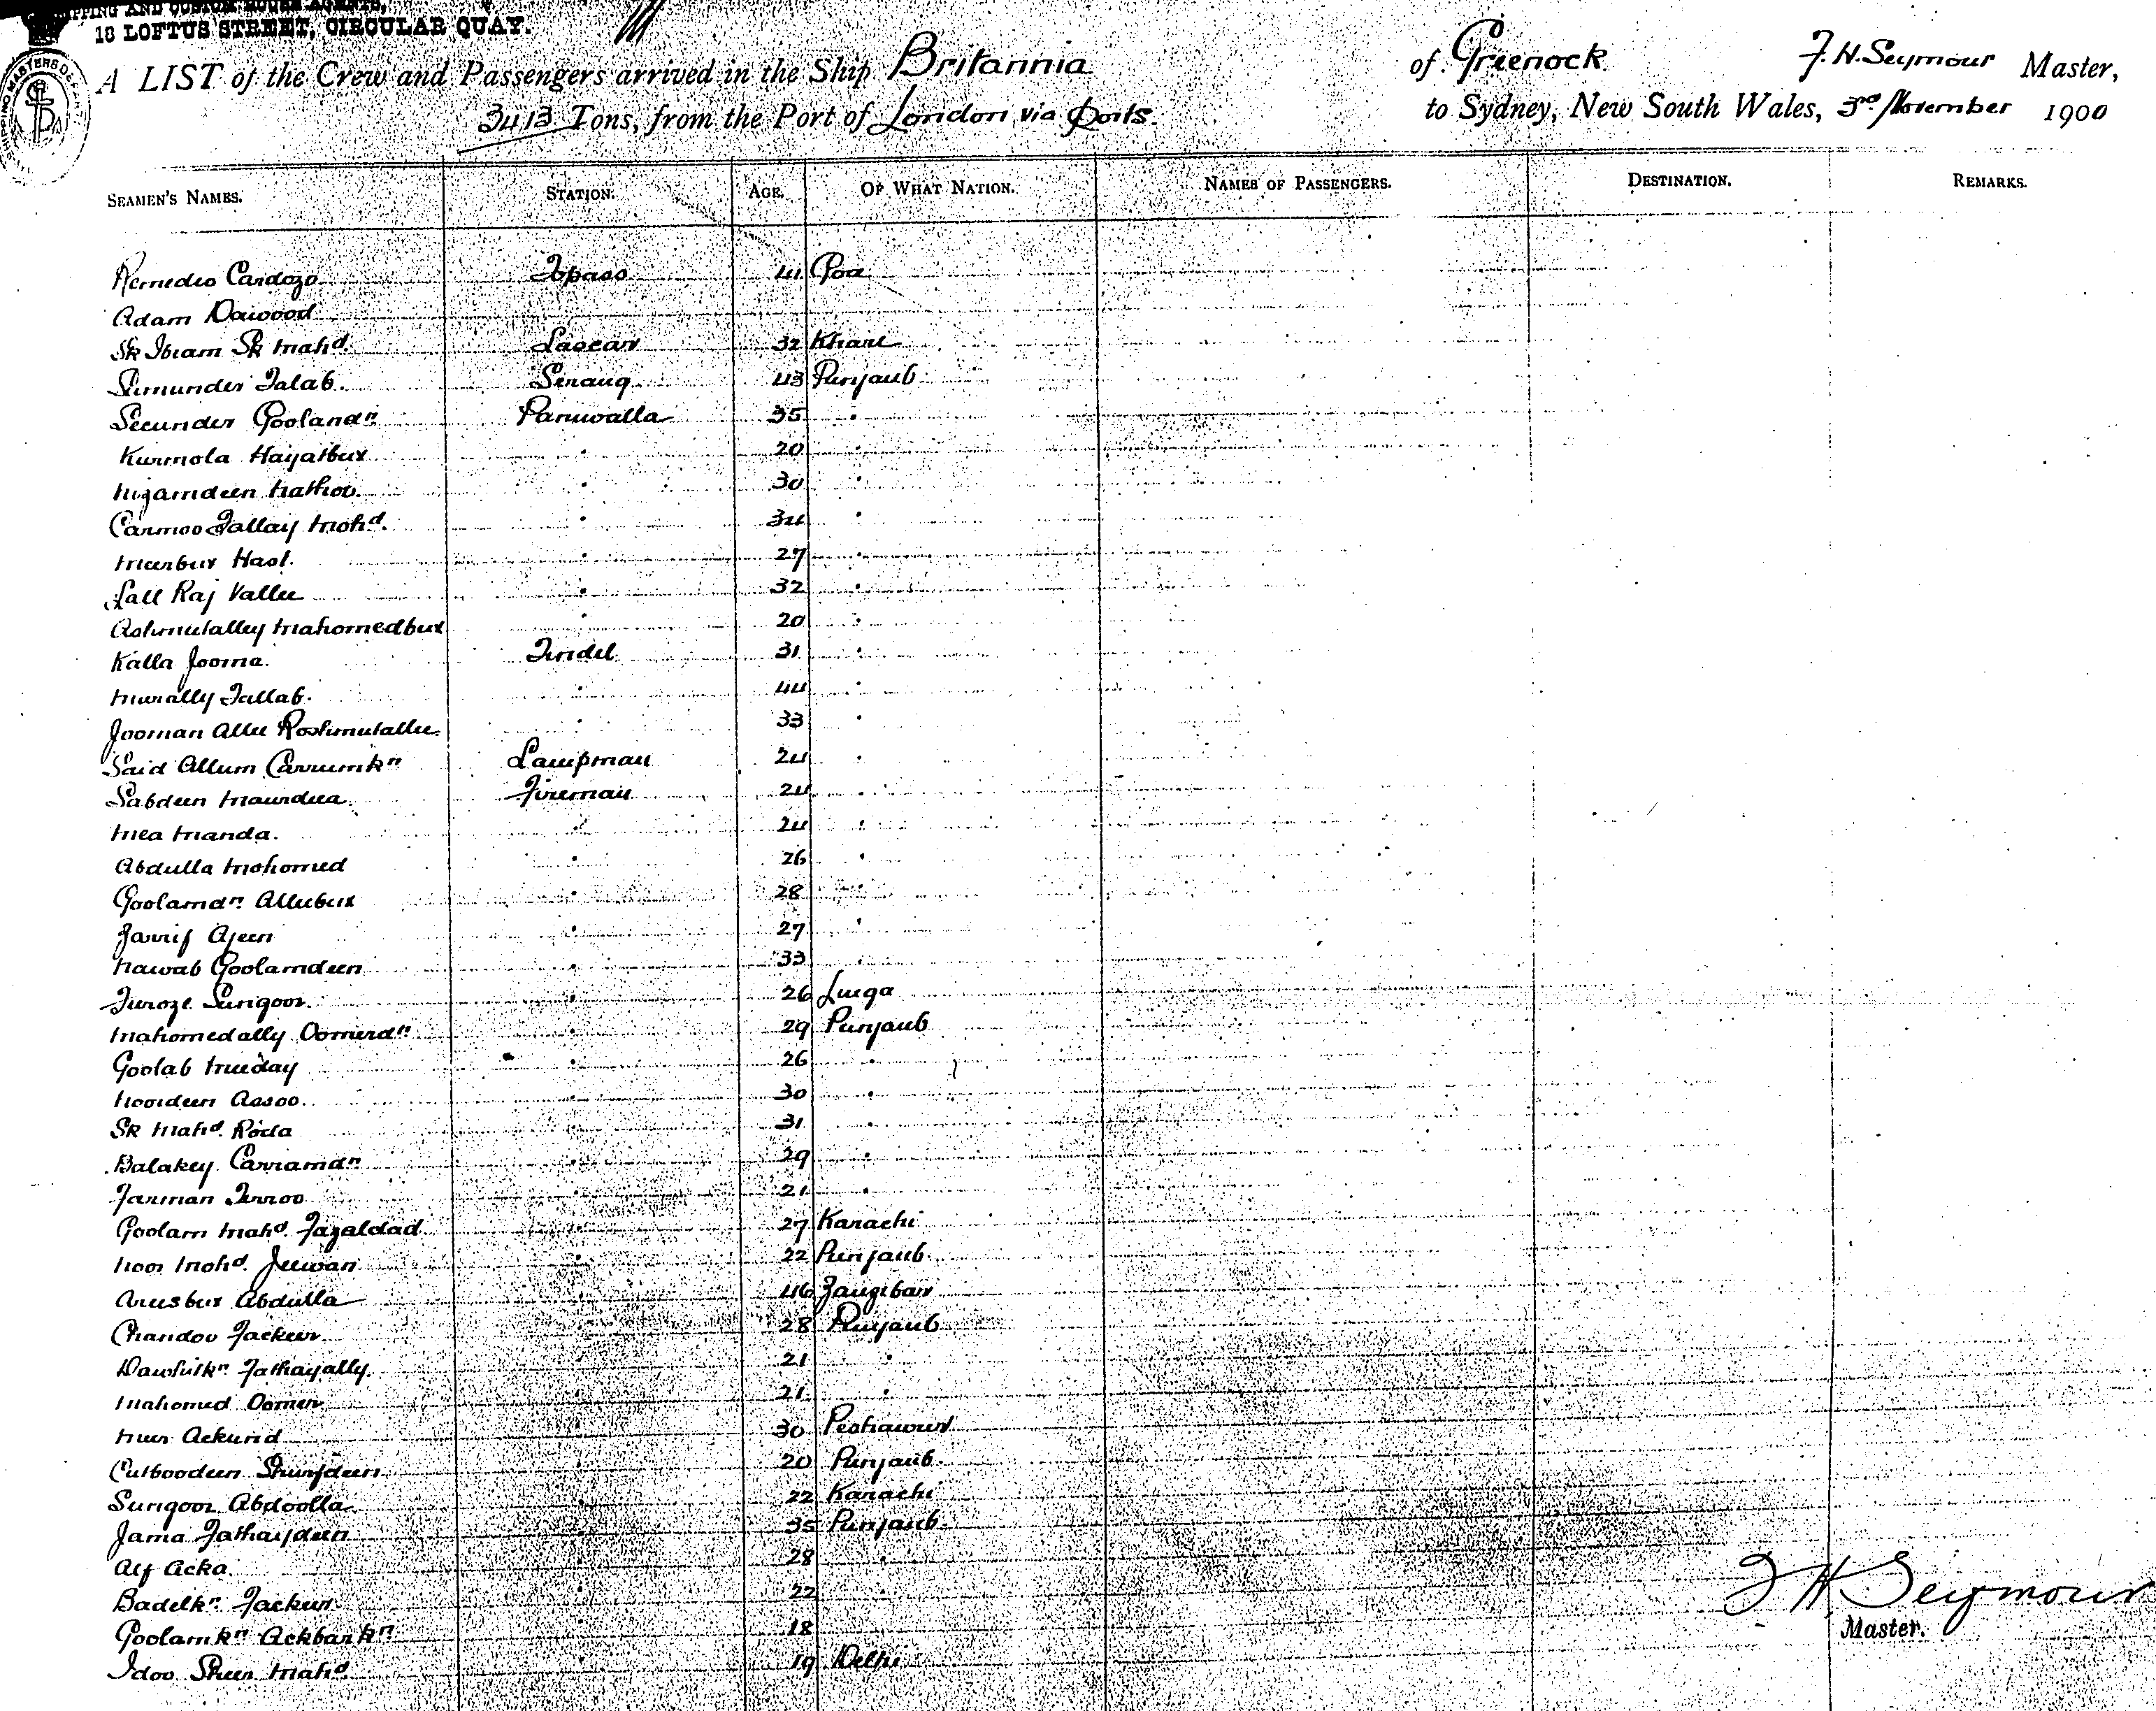 SHIPPING AND CUSTOM HOUSE AGENTS,
18 LOFTUS STREET, CIRCULAR QUAY.
A LIST of the Crew and Passengers arrived in the Ship Britannia of Greenock F. H. Seymour Master,
3413 Tons, from the Port of London via Ports. to Sydney, New South Wales, 3rd November 1900
SEAMEN'S NAMES. STATION. AGE. OF WHAT NATION. NAMES OF PASSENGERS. DESTINATION. REMARKS.
Remedio Cardozo Topass 41 Goa
Adam Dawood
Sk Ibram Sk Mahd. Lascar 32 Khare
Sumunder Talab. Serang 43 Punjaub
Secunder Goolamdn. Paniwalla 35 "
Kurmola Hayatbux " 20 "
Nizamdeen Nathoo " 30 "
Carmoo Fallay Mohd. " 34 "
Meerbux Hast. " 27 "
Lall Raj Vallee " 32 "
Ashmutalley Mahomedbux 20 "
Kalla Jooma. Tindel 31 "
Murally Tallab. " 44 "
Jooman Allee Roshmutallee " 33 "
Said Allum Carrumkn Lampman 24 "
Sabdeen Maundea Fireman 24 "
Mea Manda. " 24 "
Abdulla Mohomed " 26 "
Goolamdn. Alleebux " 28 "
Jarrif Ajeen " 27 "
Nawab Goolamdeen " 33 "
Feroze Sungoor " 26 Linga
Mahomedally Oomerdn " 29 Punjaub
Goolab Meeday " 26 "
Noordeen Assoo " 30 "
Sk Mahd. Roda " 31 "
Balakey Carramdn " 29 "
Farman Ferroo " 21 "
Goolam Mahd. Fazaldad " 27 Karachi
Noor Mohd. Jeewan " 22 Punjaub
Areesbux Abdulla " 46 Zangibar
Chandoo Fackeer " 28 Punjaub
Fathayally. " 21 "
Mahomed Oomer " 21 "
Meer Ackund " 30 Peshawur
Cutboodeen Shurfdeen " 20 Punjaub
Sungoor Abdoolla " 22 Karachi
Jama Fathaydeen " 35 Punjaub
Alf Acka " 28 "
Badelkn. Fackeer " 22 "
Goolamkn Ackbarkn " 18
Idoo Sheer Mahd " 19 Delhi
F H Seymour
Master.